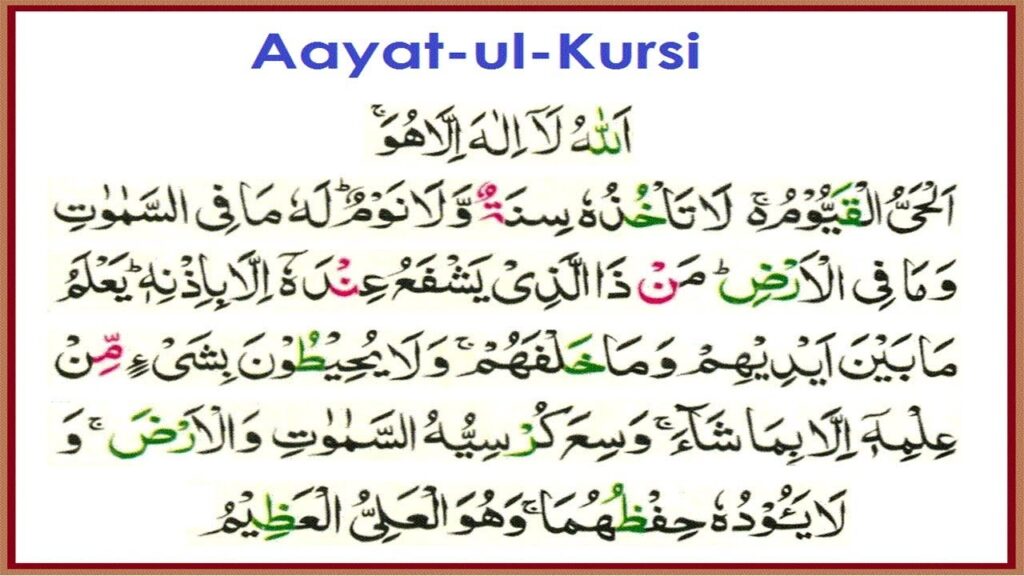 Aayat-ul-Kursi
اَللّٰهُ لَآ اِلٰهَ اِلَّا هُوَ ۚ
اَلْحَیُّ الْقَیُّوْمُ ۚ۬ لَا تَاْخُذُهٗ سِنَةٌ وَّلَا نَوْمٌ ؕ لَهٗ مَا فِی السَّمٰوٰتِ
وَمَا فِی الْاَرْضِ ؕ مَنْ ذَا الَّذِیْ یَشْفَعُ عِنْدَهٗۤ اِلَّا بِاِذْنِهٖ ؕ یَعْلَمُ
مَا بَیْنَ اَیْدِیْهِمْ وَمَا خَلْفَهُمْ ۚ وَلَا یُحِیْطُوْنَ بِشَیْءٍ مِّنْ
عِلْمِهٖۤ اِلَّا بِمَا شَآءَ ۚ وَسِعَ كُرْسِیُّهُ السَّمٰوٰتِ وَالْاَرْضَ ۚ وَ
لَا یَـُٔوْدُهٗ حِفْظُهُمَا ۚ وَهُوَ الْعَلِیُّ الْعَظِیْمُ